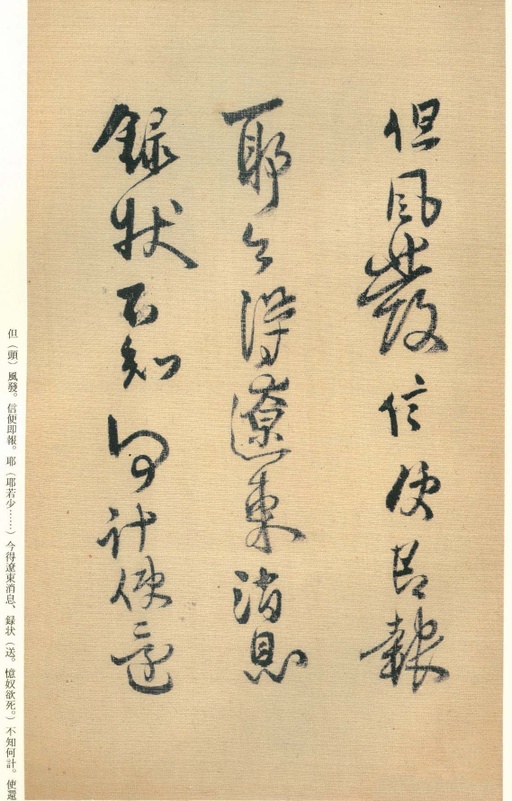 但風發信使即報
耶今得遼東消息
録狀不知何計使還
但（頭）風發。信使即報。耶（耶若少……）今得遼東消息、録状（送。憶奴欲死。）不知何計。使還